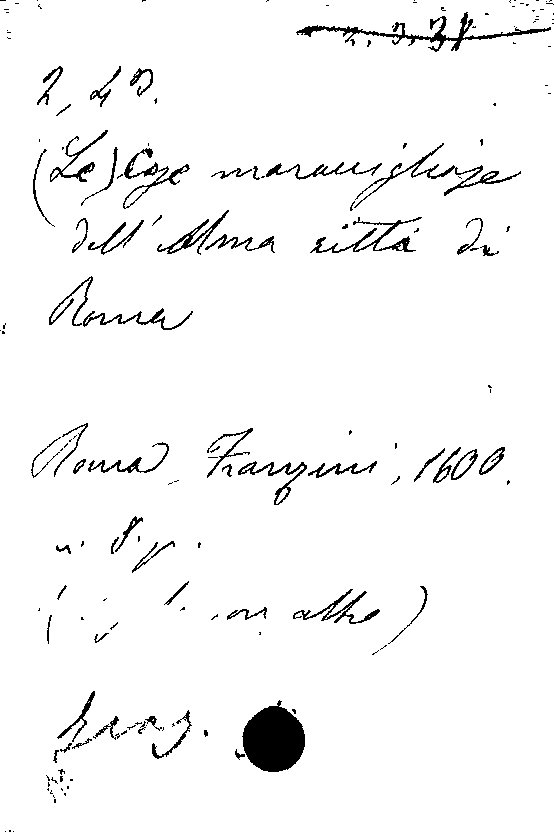 2. 3. 38
2, 43.
(Le) Cose maravigliose
dell' Alma città di
Roma
Roma, Franzini, 1600.
in 8. p.
altre)